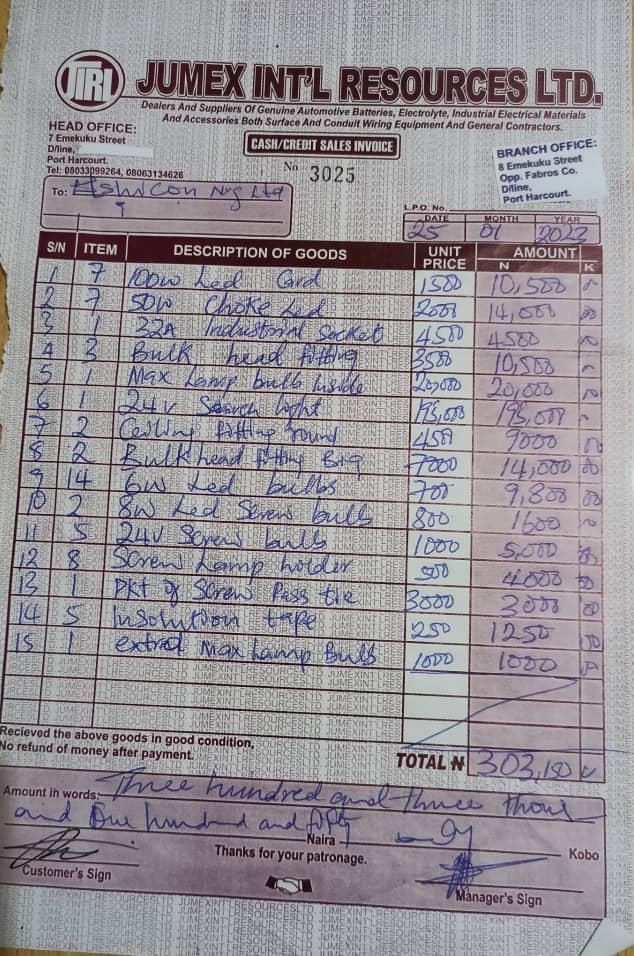 JIRL JUMEX INT'L RESOURCES LTD.
Dealers And Suppliers Of Genuine Automotive Batteries, Electrolyte, Industrial Electrical Materials
And Accessories Both Surface And Conduit Wiring Equipment And General Contractors.
HEAD OFFICE:
7 Emekuku Street
D/line,
Port Harcourt.
Tel: 08033099264, 08063134626
CASH/CREDIT SALES INVOICE
No 3025
BRANCH OFFICE:
8 Emekuku Street
Opp. Fabros Co.
D/line,
Port Harcourt.
To: Nrg Ltd
L.P.O. No.
DATE MONTH YEAR
25 01 2023
S/N ITEM DESCRIPTION OF GOODS UNIT PRICE AMOUNT N K
1 7 100w Led Card 1500 10,500
2 7 50w Choke Led 2000 14,000
3 1 32A Industrial Socket 4500 4500
4 3 Bulk head fitting 3500 10,500
5 1 Max Lamp bulb Inside 20,000 20,000
6 1 24v Search light 195,000 195,000
7 2 Ceiling fitting round 9000
8 2 Bulkhead fitting Big 7000 14,000
9 14 6w Led bulbs 700 9,800
10 2 8w Led Screw bulb 800 1600
11 5 24v Screw bulbs 1000 5,000
12 8 Screw Lamp holder 500 4000
13 1 Pkt of Screw Pass tie 3000 3000
14 5 Insolution tape 250 1250
15 1 extral Max Lamp Bulb 1000 1000
Recieved the above goods in good condition,
No refund of money after payment.
TOTAL ₦ 303,150
Amount in words: Three hundred and three thous
and One hundred and fifty
Naira Kobo
Thanks for your patronage.
Customer's Sign
Manager's Sign